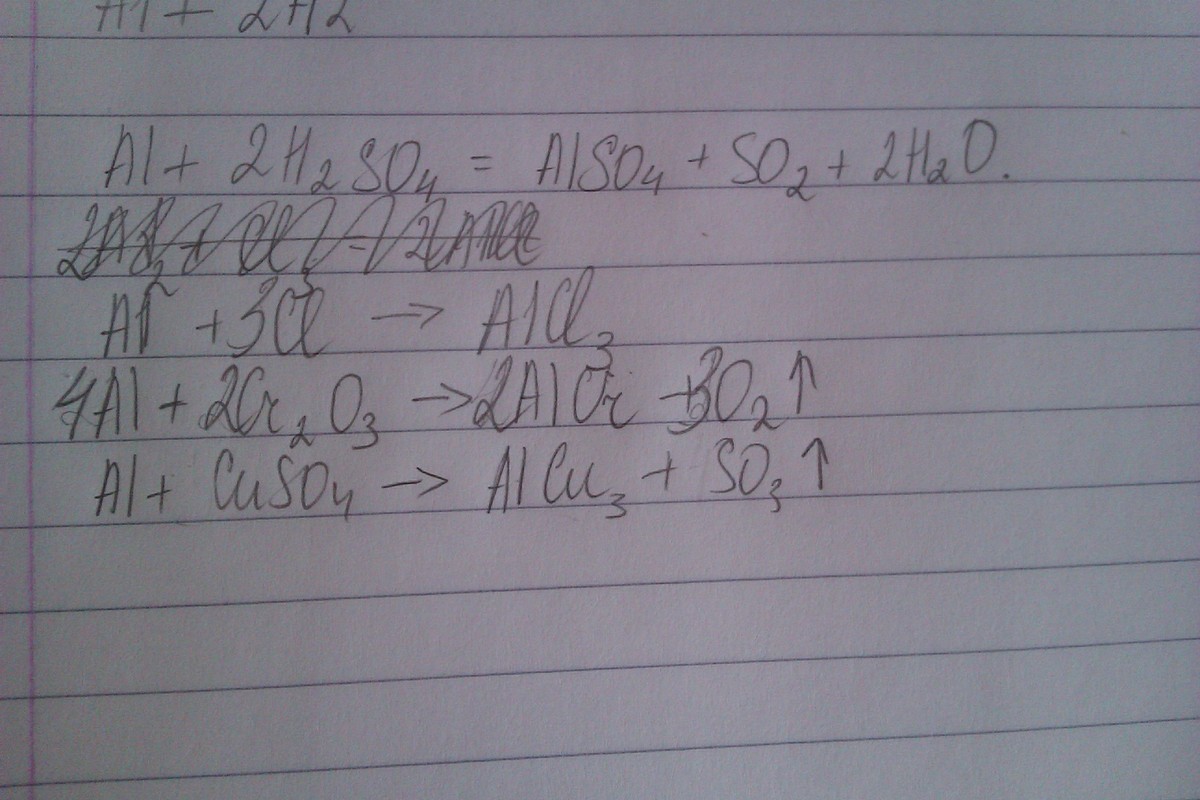 Al + 2H2
Al + 2H₂SO₄ = AlSO₄ + SO₂ + 2H₂O.
Al + 3Cl → AlCl₃
4Al + 2Cr₂O₃ → 2AlCr + 3O₂↑
Al + CuSO₄ → AlCu₃ + SO₃↑